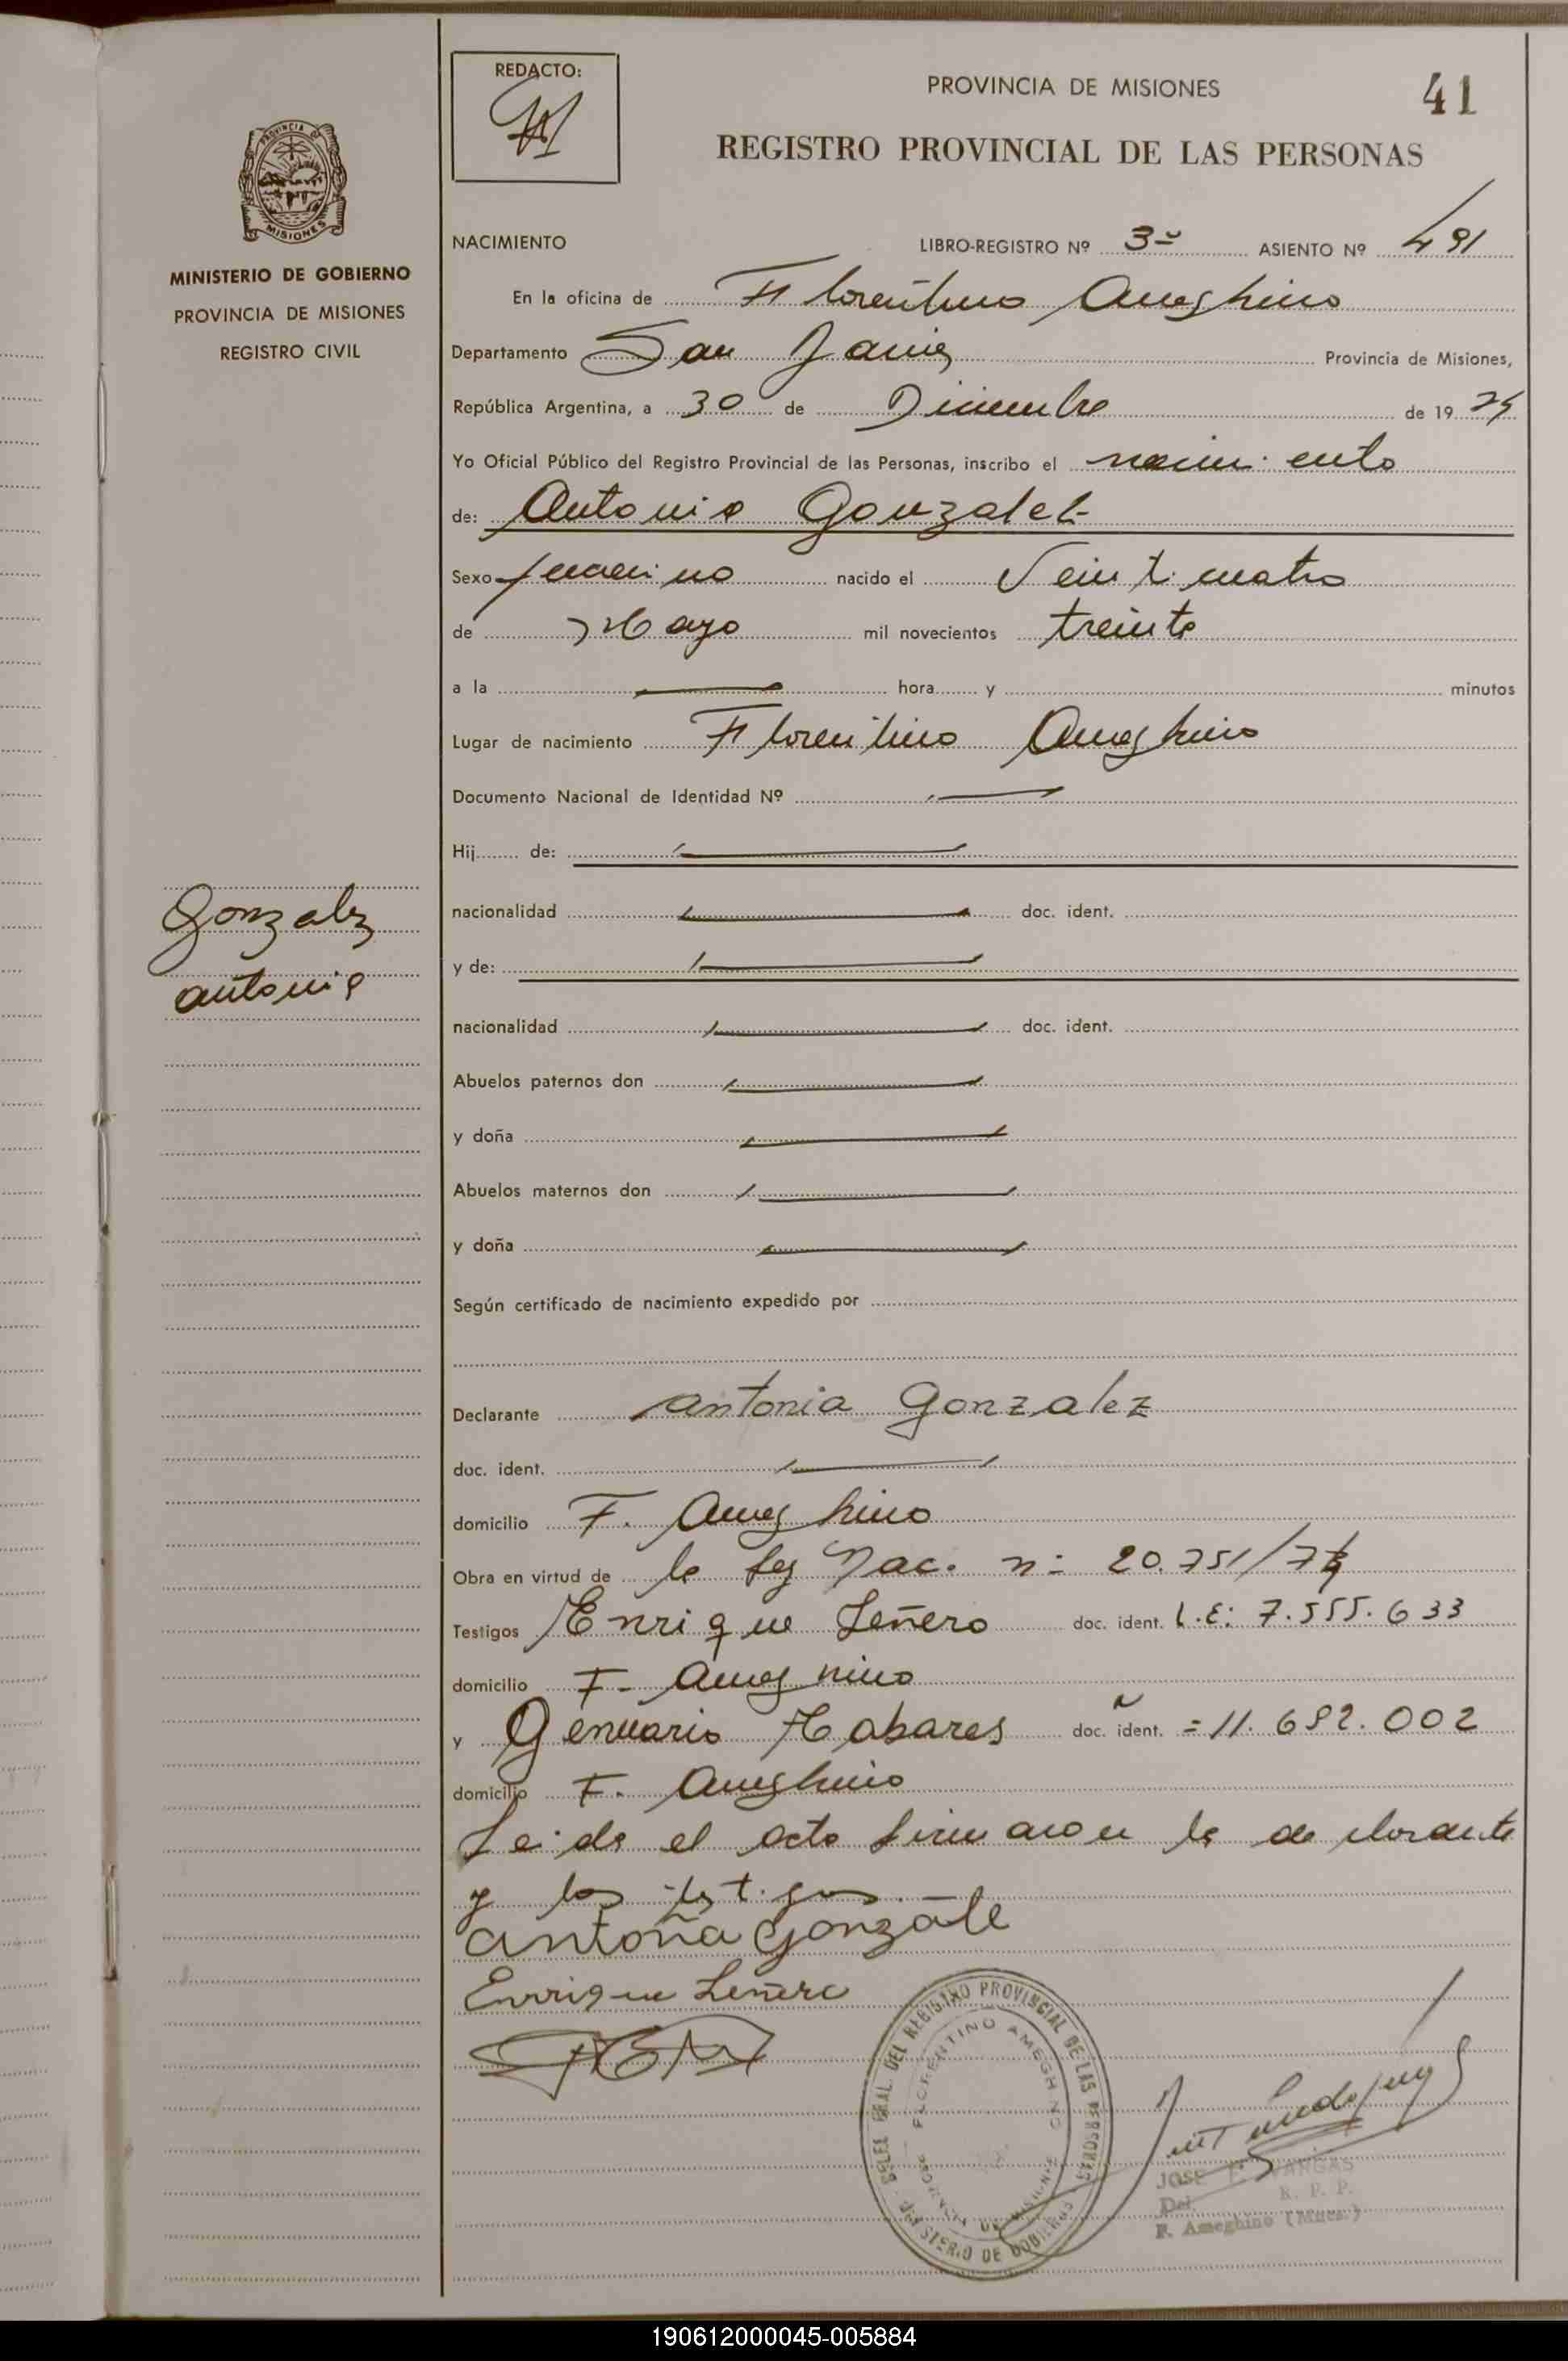 REDACTO:
PROVINCIA DE MISIONES
41
REGISTRO PROVINCIAL DE LAS PERSONAS
PROVINCIA DE
MISIONES
MINISTERIO DE GOBIERNO
PROVINCIA DE MISIONES
REGISTRO CIVIL
NACIMIENTO LIBRO-REGISTRO Nº 3º ASIENTO Nº 491
En la oficina de Florentino Ameghino
Departamento San Javier Provincia de Misiones,
República Argentina, a 30 de Diciembre de 19
Yo Oficial Público del Registro Provincial de las Personas, inscribo el nacimiento
de: Antonia Gonzalez
Sexo femenino nacido el Veinticuatro
de Mayo mil novecientos treinta
a la hora y minutos
Lugar de nacimiento Florentino Ameghino
Documento Nacional de Identidad Nº
Hij de:
Gonzalez
nacionalidad doc. ident.
antonia
y de:
nacionalidad doc. ident.
Abuelos paternos don
y doña
Abuelos maternos don
y doña
Según certificado de nacimiento expedido por
Declarante antonia gonzalez
doc. ident.
domicilio F. Ameghino
Obra en virtud de la ley Nac. nº 20.751/
Testigos Enrique Leñero doc. ident. L.E: 7.555.633
domicilio F. Ameghino
y Genuario Tabares doc. ident. 11.692.002
domicilio F. Ameghino
Leida el acta firmaron la declarante
y los testigos.
antoña gonzále
Enrrique Leñero
DEL REGISTRO PROVINCIAL DE LAS PERSONAS
FLORENTINO AMEGHINO
PROVINCIA DE MISIONES
MINISTERIO DE GOBIERNO
JOSE F. VARGAS
Del. R. P. P.
F. Ameghino (Mnes.)
190612000045-005884